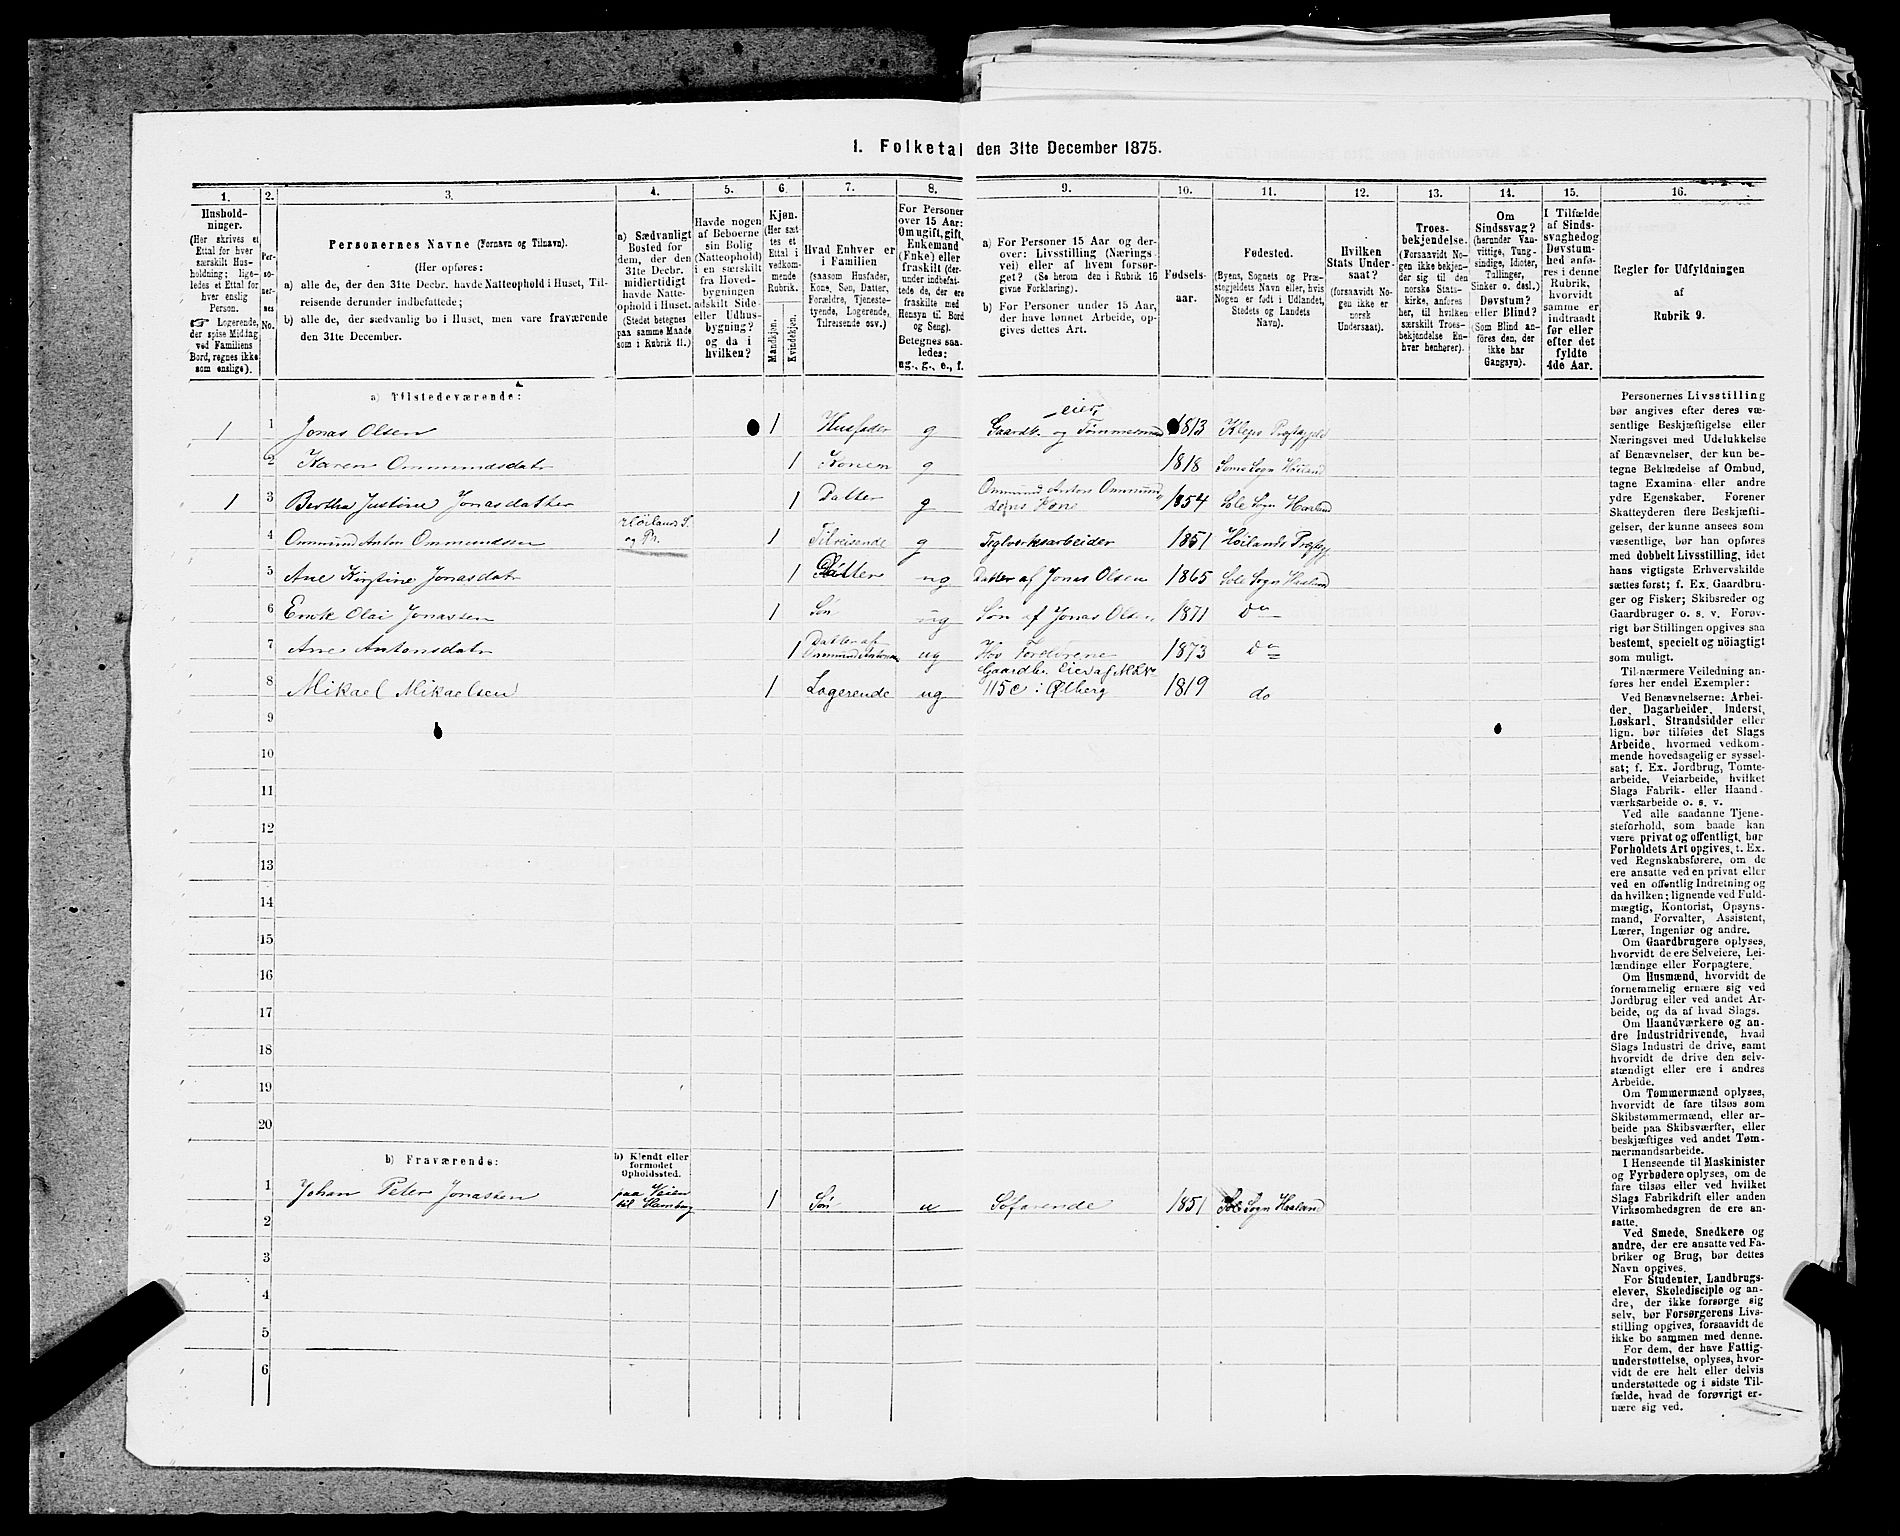 1. Folketal den 31te December 1875.
1. 2. 3. 4. 5. 6. 7. 8. 9. 10. 11. 12. 13. 14. 15. 16.
Hushold-
ninger.
(Her skrives et
Ettal for hver
særskilt Hus-
holdning; lige-
ledes et Ettal for
hver enslig
Person.
☞ Logerende,
der spise Middag
ved Familiens
Bord, regnes ikke
som enslige).
Per-
so-
ner-
nes
No.
Personernes Navne (Fornavn og Tilnavn).
(Her opføres:
a) alle de, der den 31te Decbr. havde Natteophold i Huset, Til-
reisende derunder indbefattede;
b) alle de, der sædvanlig bo i Huset, men vare fraværende
den 31te December.
a) Sædvanligt
Bosted for
dem, der den
31te Decbr.
midlertidigt
havde Natte-
ophold i Huset.
(Stedet betegnes
paa samme Maade
som i Rubrik 11.)
Havde nogen
af Beboerne
sin Bolig
(Natteophold)
i en særskilt
fra Hoved-
bygningen
adskilt Side-
eller Udhus-
bygning?
og da i
hvilken?
Kjøn.
(Her sæt-
tes et
Ettal i
vedkom-
mende
Rubrik.
Mandkjøn.
Kvindekjøn.
Hvad Enhver er
i Familien
(saasom Husfader,
Kone, Søn, Datter,
Forældre, Tjeneste-
tyende, Logerende,
Tilreisende osv.)
For Personer
over 15 Aar:
Om ugift, gift,
Enkemand
(Enke) eller
fraskilt (der-
under indbefat-
tede de, der ere
fraskilte med
Hensyn til Bord
og Seng).
Betegnes saa-
ledes:
ug., g., e., f.
a) For Personer 15 Aar og der-
over: Livsstilling (Nærings-
vei) eller af hvem forsør-
get? (Se herom den i Rubrik 16
givne Forklaring).
b) For Personer under 15 Aar,
der have lønnet Arbeide, op-
gives dettes Art.
Fødsels-
aar.
Fødested.
(Byens, Sognets og Præ-
stegjeldets Navn eller, hvis
Nogen er født i Udlandet,
Stedets og Landets
Navn).
Hvilken
Stats Under-
saat?
(forsaavidt No-
gen ikke er
norsk
Undersaat).
Troes-
bekjendelse.
(Forsaavidt No-
gen ikke bekjen-
der sig til den
norske Stats-
kirke, anføres
her, til hvilken
særskilt Troes-
bekjendelse En-
hver henhører).
Om
Sindssvag?
(herunder Van-
vittige, Tung-
sindige, Idioter,
Tullinger,
Sinker o. desl.)
Døvstum?
eller Blind?
(Som Blind an-
føres den, der
ikke har
Gangsyn).
I Tilfælde
af Sinds-
svaghed og
Døvstum-
hed anfø-
res i denne
Rubrik,
hvorvidt
samme er
indtraadt
før eller
efter det
fyldte
4de Aar.
Regler for Udfyldningen
af
Rubrik 9.
a) Tilstedeværende:
1 1 Jonas Olsen 1 Husfader g Gaardb. eier, og Tømmermand 1813 Klep Præstegjeld
2 Karen Ommundsdatr 1 Konen g 1818 Soma Sogn Høiland
1 3 Bertha Justine Jonasdatter 1 Datter g Ommund Anton Ommund
dsens Kone 1854 Sole Sogn Haaland
4 Ommund Anton Ommundsen Høilands S.
og Pr. 1 Tilreisende g Teglverksarbeider 1851 Høilands Præstg
5 Ane Kirstine Jonasdatr 1 Datter ug Datter af Jonas Olsen 1865 Sole Sogn Haaland
6 Enok Olai Jonassen 1 Søn ug Søn af Jonas Olsen 1871 Do
7 Ane Antonsdatr 1 Datter af
Ommund Antonsen ug Hos Forældrene 1873 Do
8 Mikael Mikaelsen 1 Logerende ug Gaardbr. Eier af M.L.No
115c i Ølberg 1819 do
9
10
11
12
13
14
15
16
17
18
19
20
b) Fraværende:
b) Kjendt eller
formodet
Opholdssted.
1 Johan Peter Jonassen paa Veien
til Hamburg 1 Søn u Søfarende 1851 Sole Sogn Haaland
2
3
4
5
6
Personernes Livsstilling
bør angives efter deres væ-
sentlige Beskjæftigelse eller
Næringsvei med Udelukkelse
af Benævnelser, der kun be-
tegne Beklædelse af Ombud,
tagne Examina eller andre
ydre Egenskaber. Forener
Skatteyderen flere Beskjæfti-
gelser, der kunne ansees som
væsentlige, bør han opføres
med dobbelt Livsstilling, idet
hans vigtigste Erhvervskilde
sættes først; f. Ex. Gaardbru-
ger og Fisker; Skibsreder og
Gaardbruger o. s. v. Forøv-
rigt bør Stillingen opgives saa
bestemt, specielt og nøiagtigt
som muligt.
Til nærmere Veiledning an-
føres her endel Exempler:
Ved Benævnelserne: Arbei-
der, Dagarbeider, Inderst,
Løskarl, Strandsidder eller
lign. bør tilføies det Slags
Arbeide, hvormed vedkom-
mende hovedsagelig er syssel-
sat; f. Ex. Jordbrug, Tomte-
arbeide, Veiarbeide, hvilket
Slags Fabrik- eller Haand-
værksarbeide o. s. v.
Ved alle saadanne Tjene-
steforhold, som baade kan
være privat og offentligt, bør
Forholdets Art opgives, t. Ex.
ved Regnskabsførere, om de
ere ansatte ved en privat eller
ved en offentlig Indretning og
da hvilken; lignende ved Fuld-
mægtig, Kontorist, Opsyns-
mand, Forvalter, Assistent,
Lærer, Ingeniør og andre.
Om Gaardbrugere oplyses,
hvorvidt de ere Selveiere, Lei-
lændinge eller Forpagtere.
Om Husmænd, hvorvidt de
fornemmelig ernære sig ved
Jordbrug eller ved andet Ar-
beide, og da af hvad Slags.
Om Haandværkere og an-
dre Industridrivende, hvad
Slags Industri de drive, samt
hvorvidt de drive den selv-
stændigt eller ere i andres
Arbeide.
Om Tømmermænd oplyses,
hvorvidt de fare tilsøs som
Skibstømmermænd, eller ar-
beide paa Skibsværfter, eller
beskjæftiges ved andet Tøm-
mermandsarbeide.
I Henseende til Maskinister
og Fyrbødere oplyses, om de
fare tilsøs eller ved hvilket
Slags Fabrikdrift eller anden
Virksomhedsgren de ere an-
satte.
Ved Smede, Snedkere og
andre, der ere ansatte ved Fa-
briker og Brug, bør dettes
Navn opgives.
For Studenter, Landbrugs-
elever, Skoledisciple og an-
dre, der ikke forsørge sig
selv, bør Forsørgerens Livs-
stilling opgives, forsaavidt de
ikke bo sammen med denne.
For dem, der have Fattig-
understøttelse, oplyses, hvor-
vidt de ere helt eller delvis
understøttede og i sidste Til-
fælde, hvad de forøvrigt er-
nære sig ved.